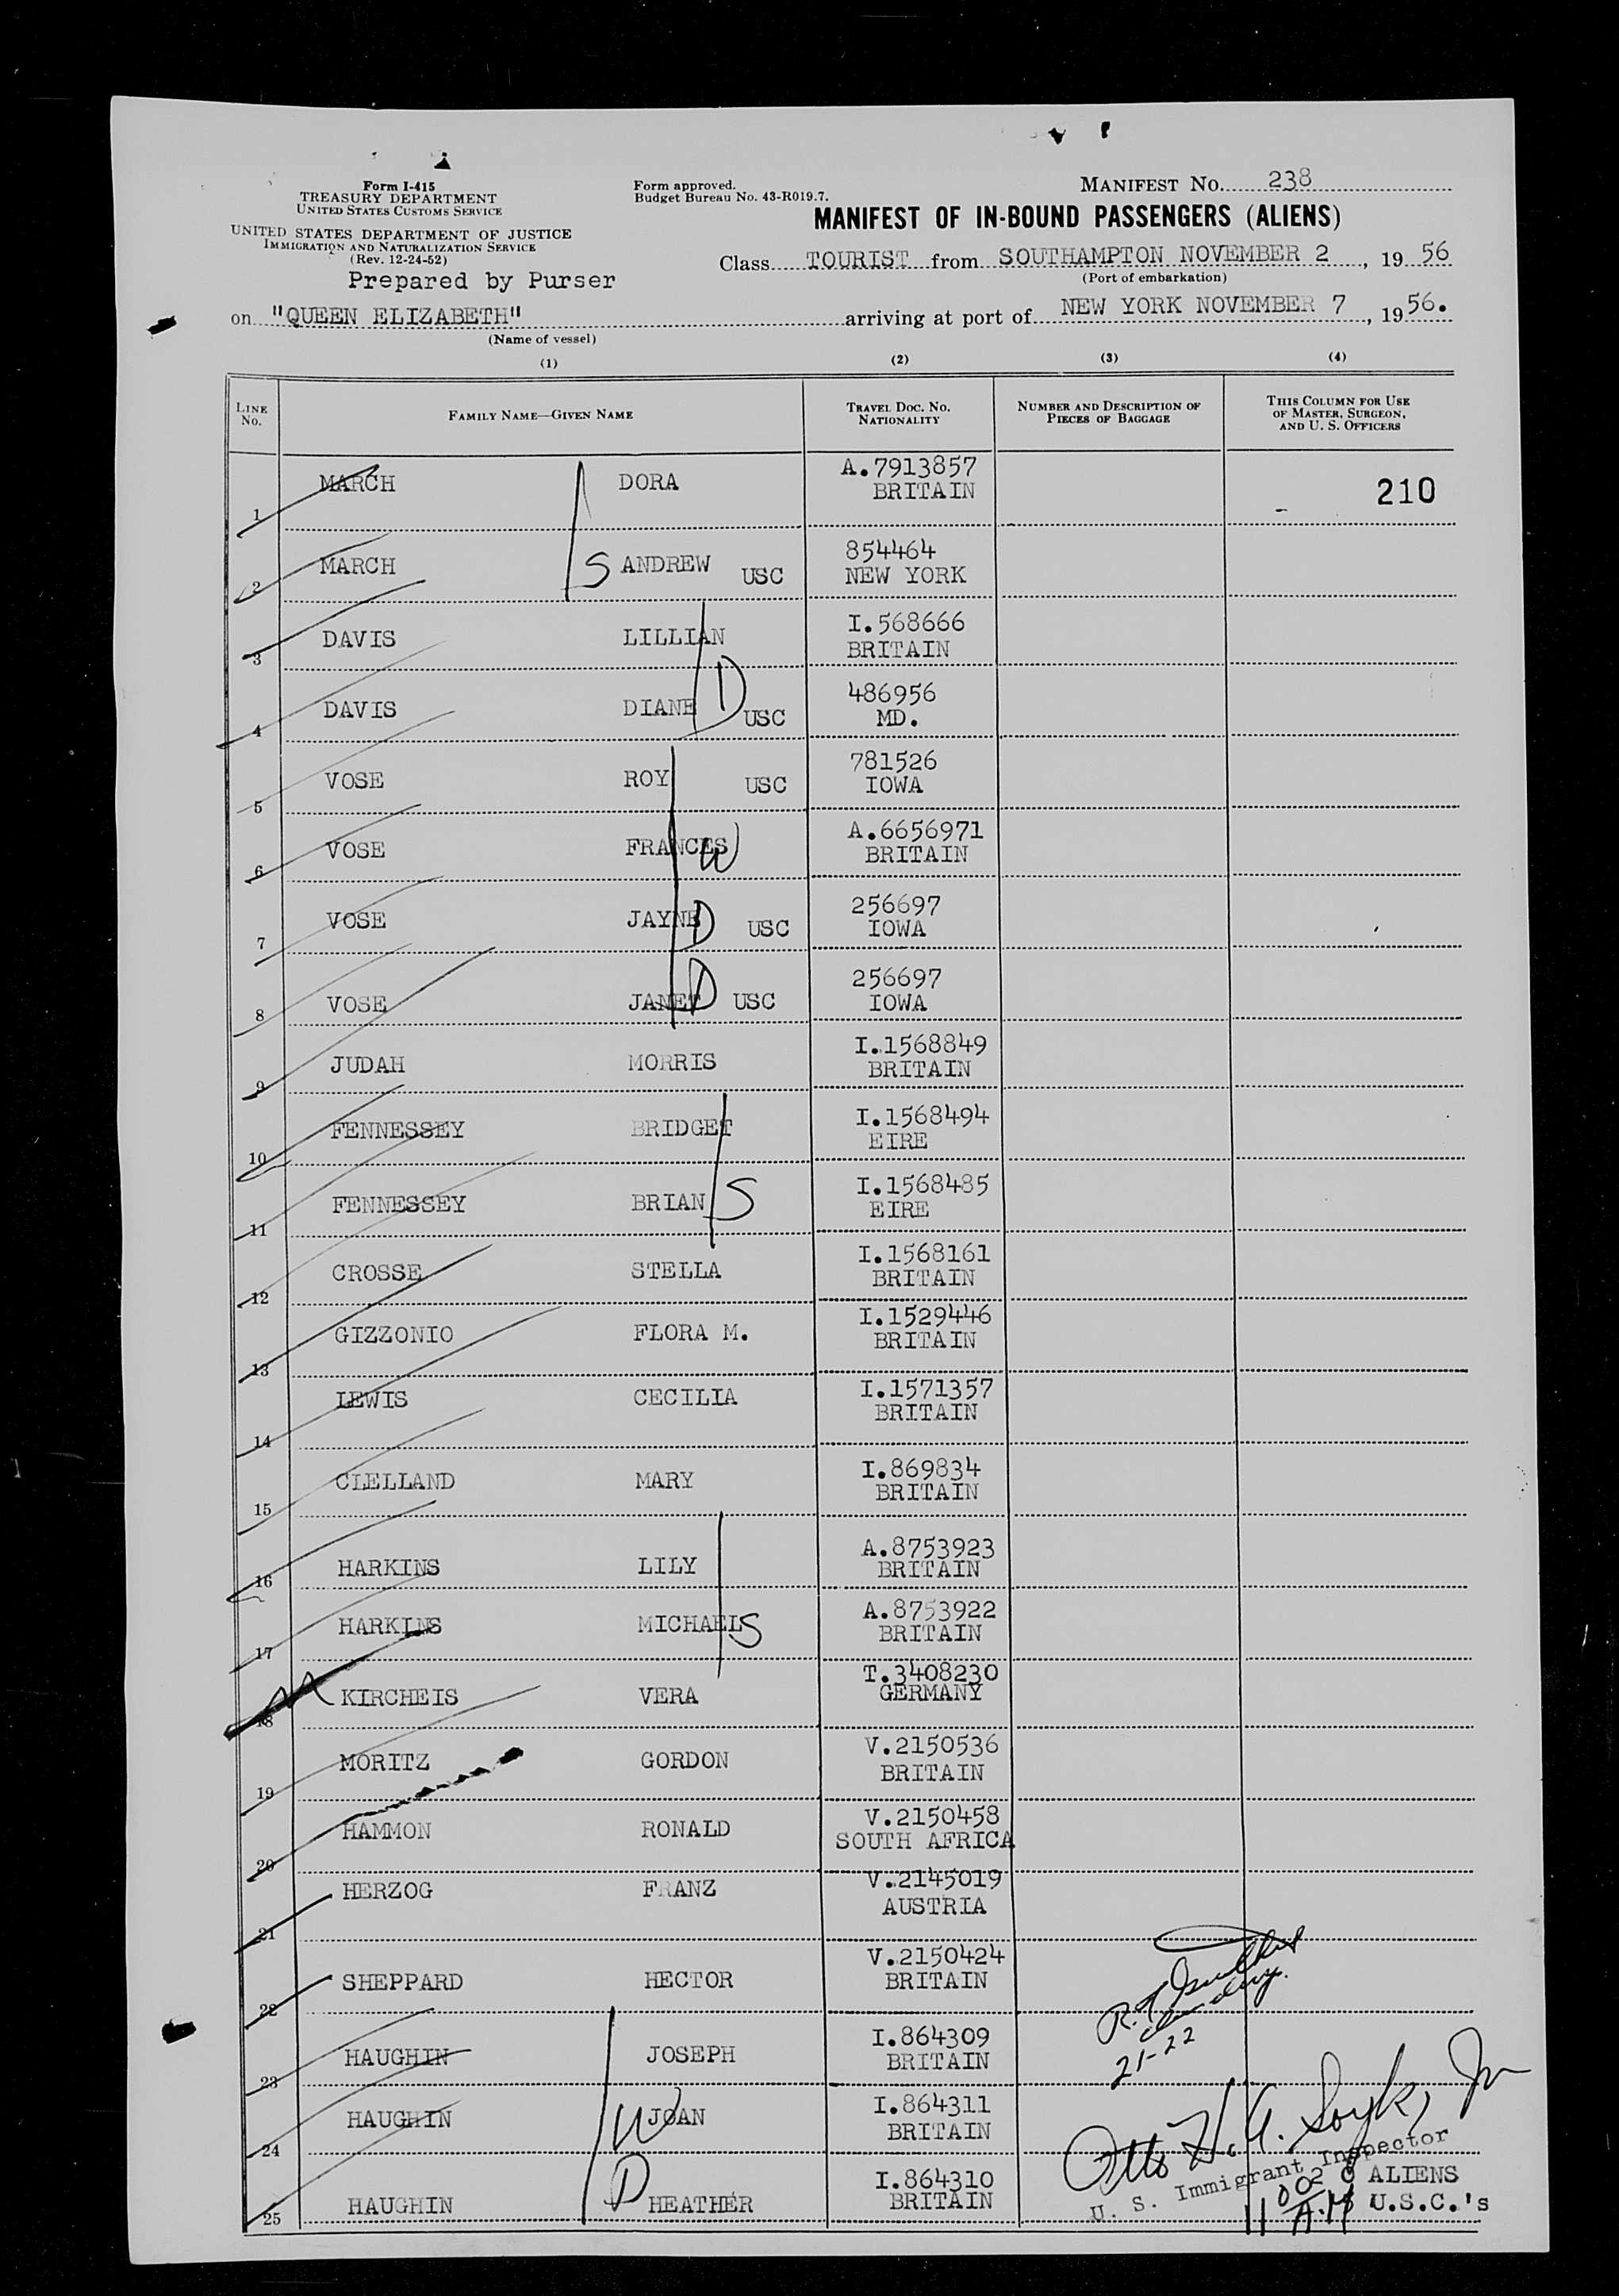 Form I-415
TREASURY DEPARTMENT
UNITED STATES CUSTOMS SERVICE
UNITED STATES DEPARTMENT OF JUSTICE
IMMIGRATION AND NATURALIZATION SERVICE
(Rev. 12-24-52)
Prepared by Purser
Form approved.
Budget Bureau No. 43-R019.7.
MANIFEST NO. 238
MANIFEST OF IN-BOUND PASSENGERS (ALIENS)
Class TOURIST from SOUTHAMPTON NOVEMBER 2, 19 56
(Port of embarkation)
on "QUEEN ELIZABETH" arriving at port of NEW YORK NOVEMBER 7, 19 56.
(Name of vessel)
(1) (2) (3) (4)
LINE NO. FAMILY NAME—GIVEN NAME TRAVEL DOC. NO. NATIONALITY NUMBER AND DESCRIPTION OF PIECES OF BAGGAGE THIS COLUMN FOR USE OF MASTER, SURGEON, AND U. S. OFFICERS
1 MARCH DORA A.7913857 BRITAIN 210
2 MARCH S ANDREW USC 854464 NEW YORK
3 DAVIS LILLIAN I.568666 BRITAIN
4 DAVIS DIANE D USC 486956 MD.
5 VOSE ROY USC 781526 IOWA
6 VOSE FRANCES W A.6656971 BRITAIN
7 VOSE JAYNE D USC 256697 IOWA
8 VOSE JANET D USC 256697 IOWA
9 JUDAH MORRIS I.1568849 BRITAIN
10 FENNESSEY BRIDGET I.1568494 EIRE
11 FENNESSEY BRIAN S I.1568485 EIRE
12 CROSSE STELLA I.1568161 BRITAIN
13 GIZZONIO FLORA M. I.1529446 BRITAIN
14 LEWIS CECILIA I.1571357 BRITAIN
15 CLELLAND MARY I.869834 BRITAIN
16 HARKINS LILY A.8753923 BRITAIN
17 HARKINS MICHAEL S A.8753922 BRITAIN
18 KIRCHEIS VERA T.3408230 GERMANY
19 MORITZ GORDON V.2150536 BRITAIN
20 HAMMON RONALD V.2150458 SOUTH AFRICA
21 HERZOG FRANZ V.2145019 AUSTRIA
22 SHEPPARD HECTOR V.2150424 BRITAIN
23 HAUGHIN JOSEPH I.864309 BRITAIN
21-22
24 HAUGHIN W JOAN I.864311 BRITAIN
Otto H. A. Soyk, Jr
U. S. Immigrant Inspector
25 HAUGHIN D HEATHER I.864310 BRITAIN
ALIENS
U.S.C.'s